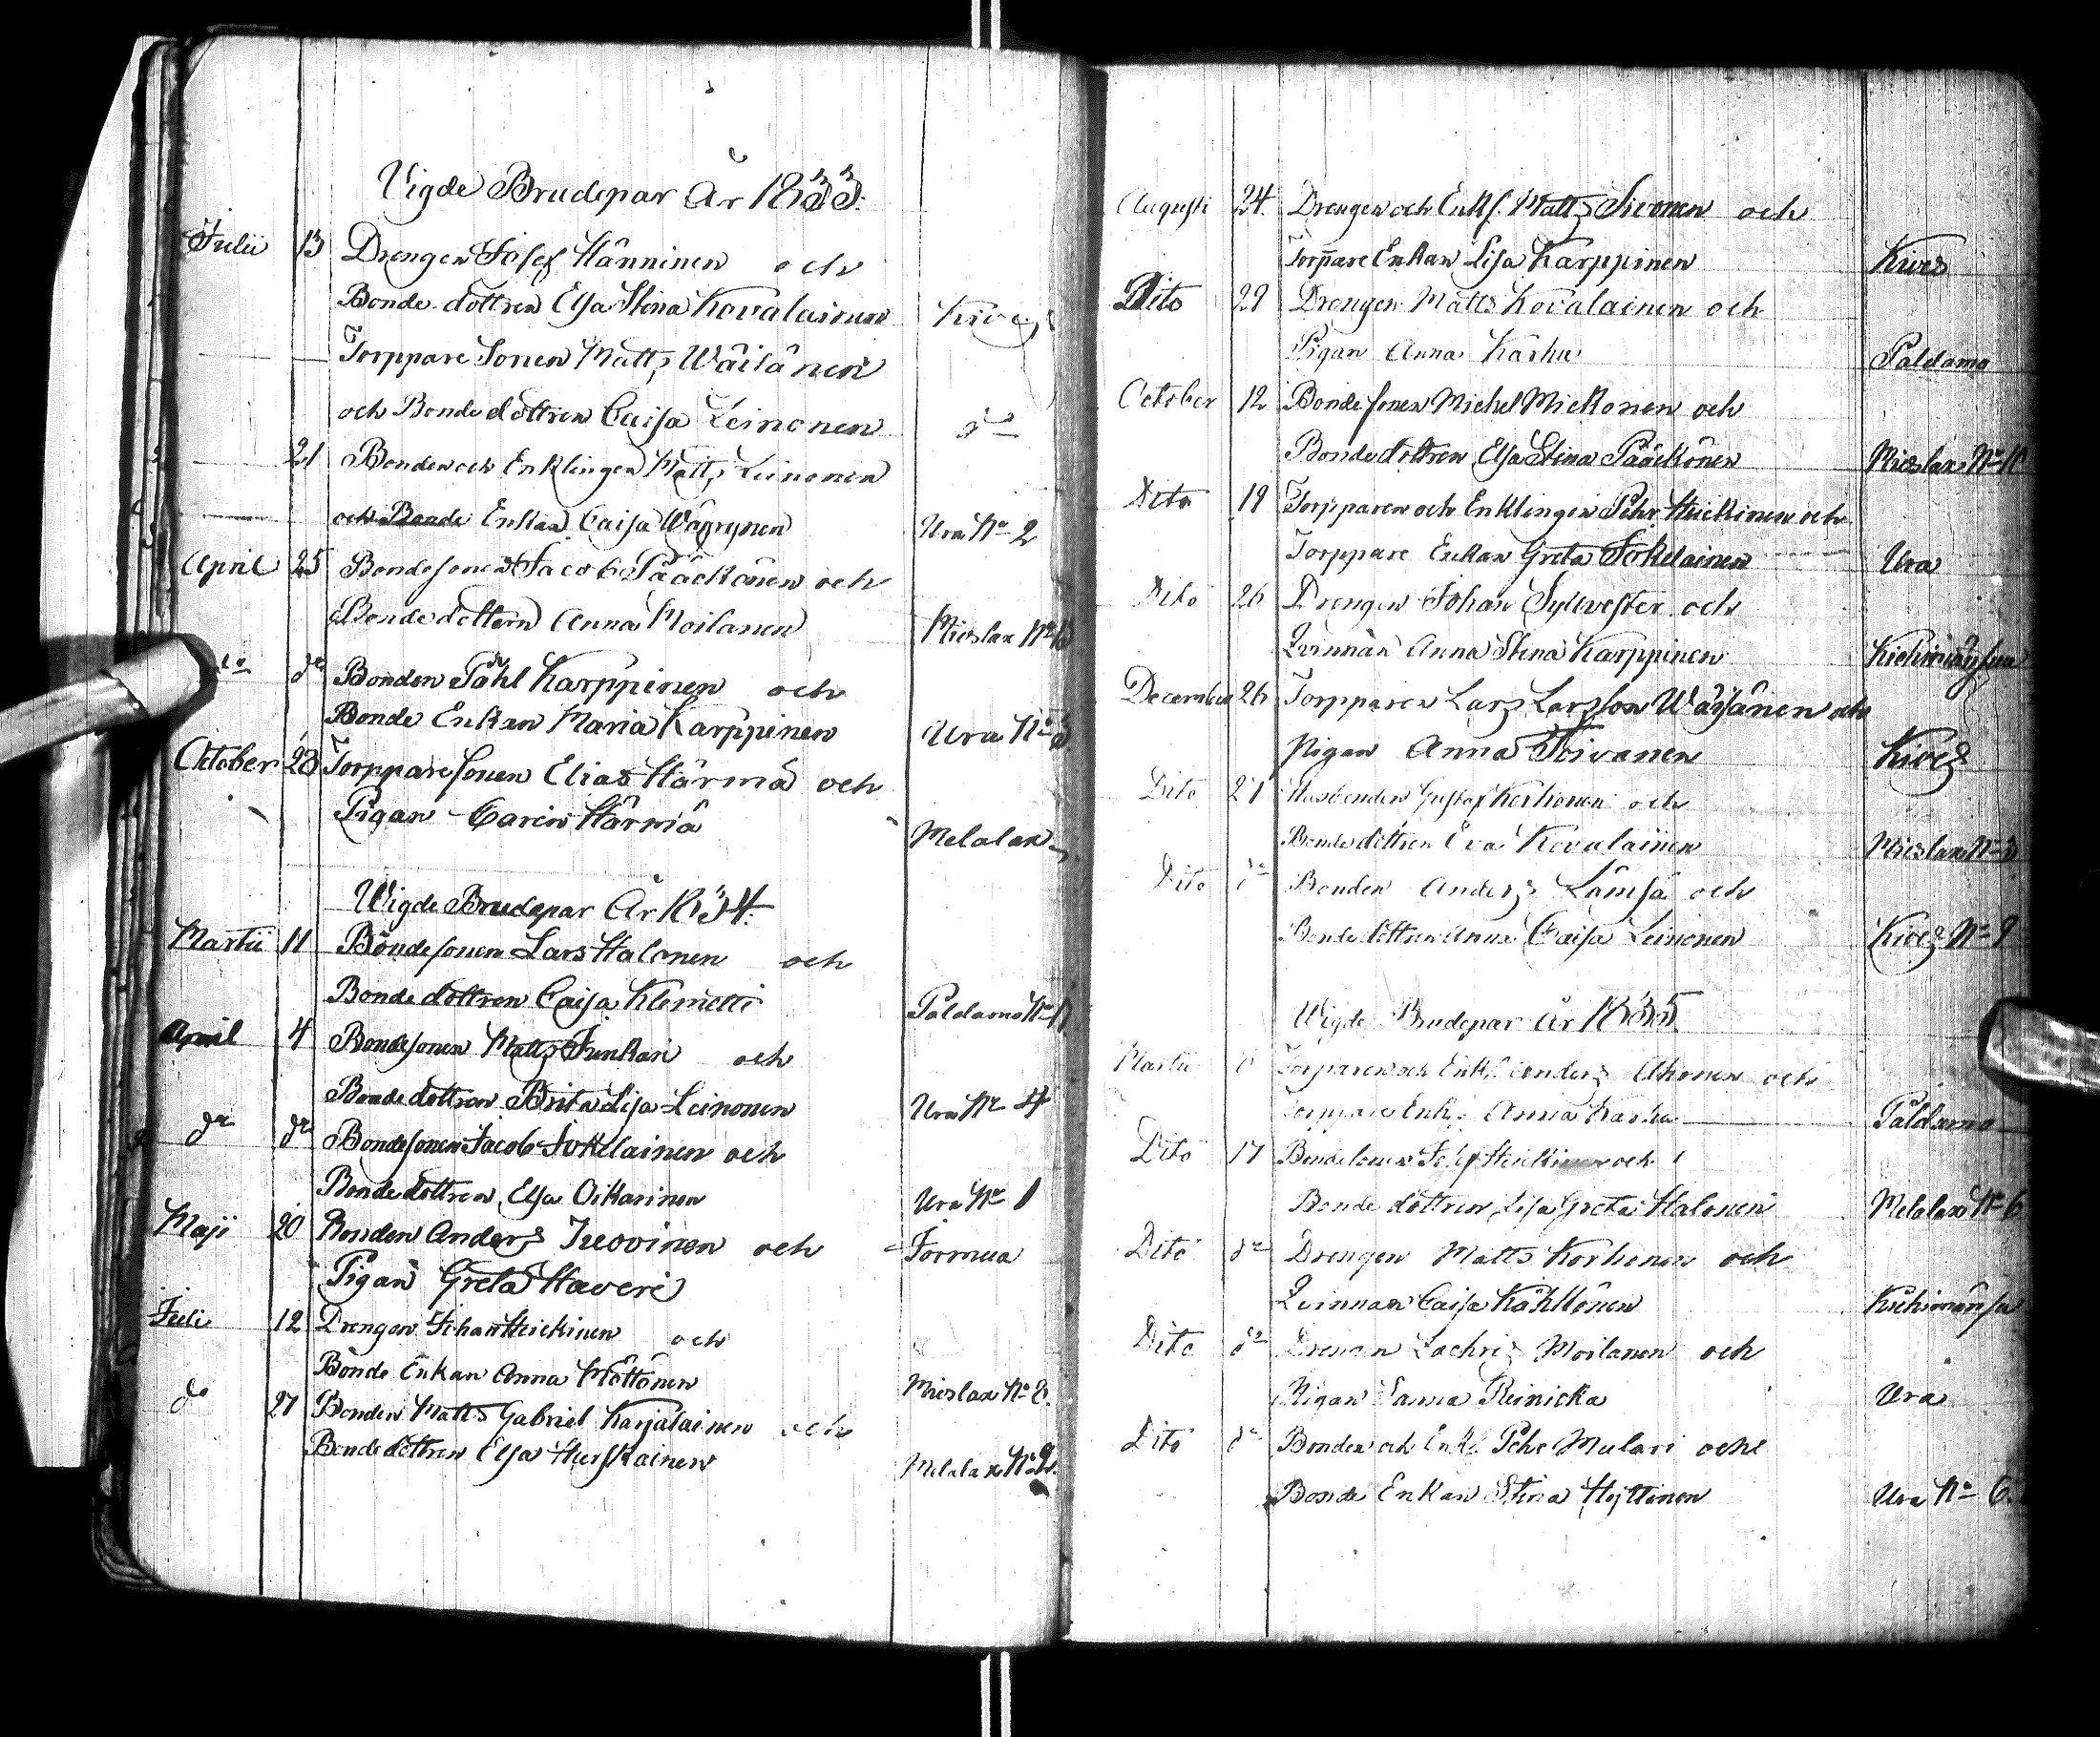 Vigde Brudepar År 1833.
Julii 13 Drengen Josef Hänninen och
Bonde dottren Elsa Stina Kovalainen Kives
Torppare Sonen Matts Wäisänen
och Bonde dottren Caisa Leinonen do
21 Bonden och Enklingen Matts Leinonen
och Bonde Enkan Caisa Wäyrynen Ura No 2
April 25 Bondesonen Jacob Pääckönen och
Bonde dottern Anna Moilanen Mieslax No
do do Bonden Påhl Karppinen och
Bonde Enkan Maria Karppinen Ura No 3
October 28 Torppare sonen Elias Härmä och
Pigan Carin Härmä Melalax
Wigde Brudepar År 1834.
Martii 11 Bondesonen Lars Halonen och
Bonde dottren Caisa Klemetti Paldamo No
April 4 Bondesonen Matts Junkari och
Bonde dottren Brita Lisa Leinonen Ura No 4
do do Bondesonen Jacob Jokelainen och
Bonde dottren Elsa Oikarinen Ura No 1
Maji 20 Bonden Anders Juovinen och Jormua
Pigan Greta Haveri
Juli 12 Drengen Johan Heickinen och
Bonde Enkan Anna Möttönen Mieslax No
do 27 Bonden Matts Gabriel Karjalainen och
Bonde dottren Elsa Hurskainen Melalax No
Augusti 24. Drengen och Enkl. Matts Sivonen och
Torppare Enkan Lisa Karppinen Kives
Dito 29 Drengen Matts Kovalainen och
Pigan Anna Karhu Paldamo
October 12 Bonde sonen Michel Mickonen och
Bonde dottren Elsa Stina Pääckönen Mieslax No 10
Dito 19 Torpparen och Enklingen Pehr Heickinen och
Torppare Enkan Greta Jokelainen Ura
Dito 26 Drengen Johan Sylvester och
Qvinnan Anna Stina Karppinen Kiehimänsuu
December 26 Torpparen Lars Larsson Wäisänen och
Pigan Anna Toivanen Kives
Dito 27 Husbonden Gustaf Korhonen och
Bonde dottren Eva Kovalainen Mieslax No 3
Dito do Bonden Anders Lämsä och
Bonde dottren Anna Caisa Leinonen Kives No 9
Wigde Brudepar År 1835
Martii Torparen och Enkl. Anders Ahonen och
Torppare Enk. Anna Karhu Paldamo
Dito 17 Bondesonen Josef Heickinen och
Bonde dottren Lisa Greta Halonen Melalax No 6
Dito do Drengen Matts Korhonen och
Qvinnan Caisa Kähkönen Kiehimänsu
Dito do Drengen Zachris Moilanen och
Pigan Sanna Reinicka Ura
Dito do Bonden och Enkl. Pehr Mulari och
Bonde Enkan Stina Hyttinen Ura No 6.